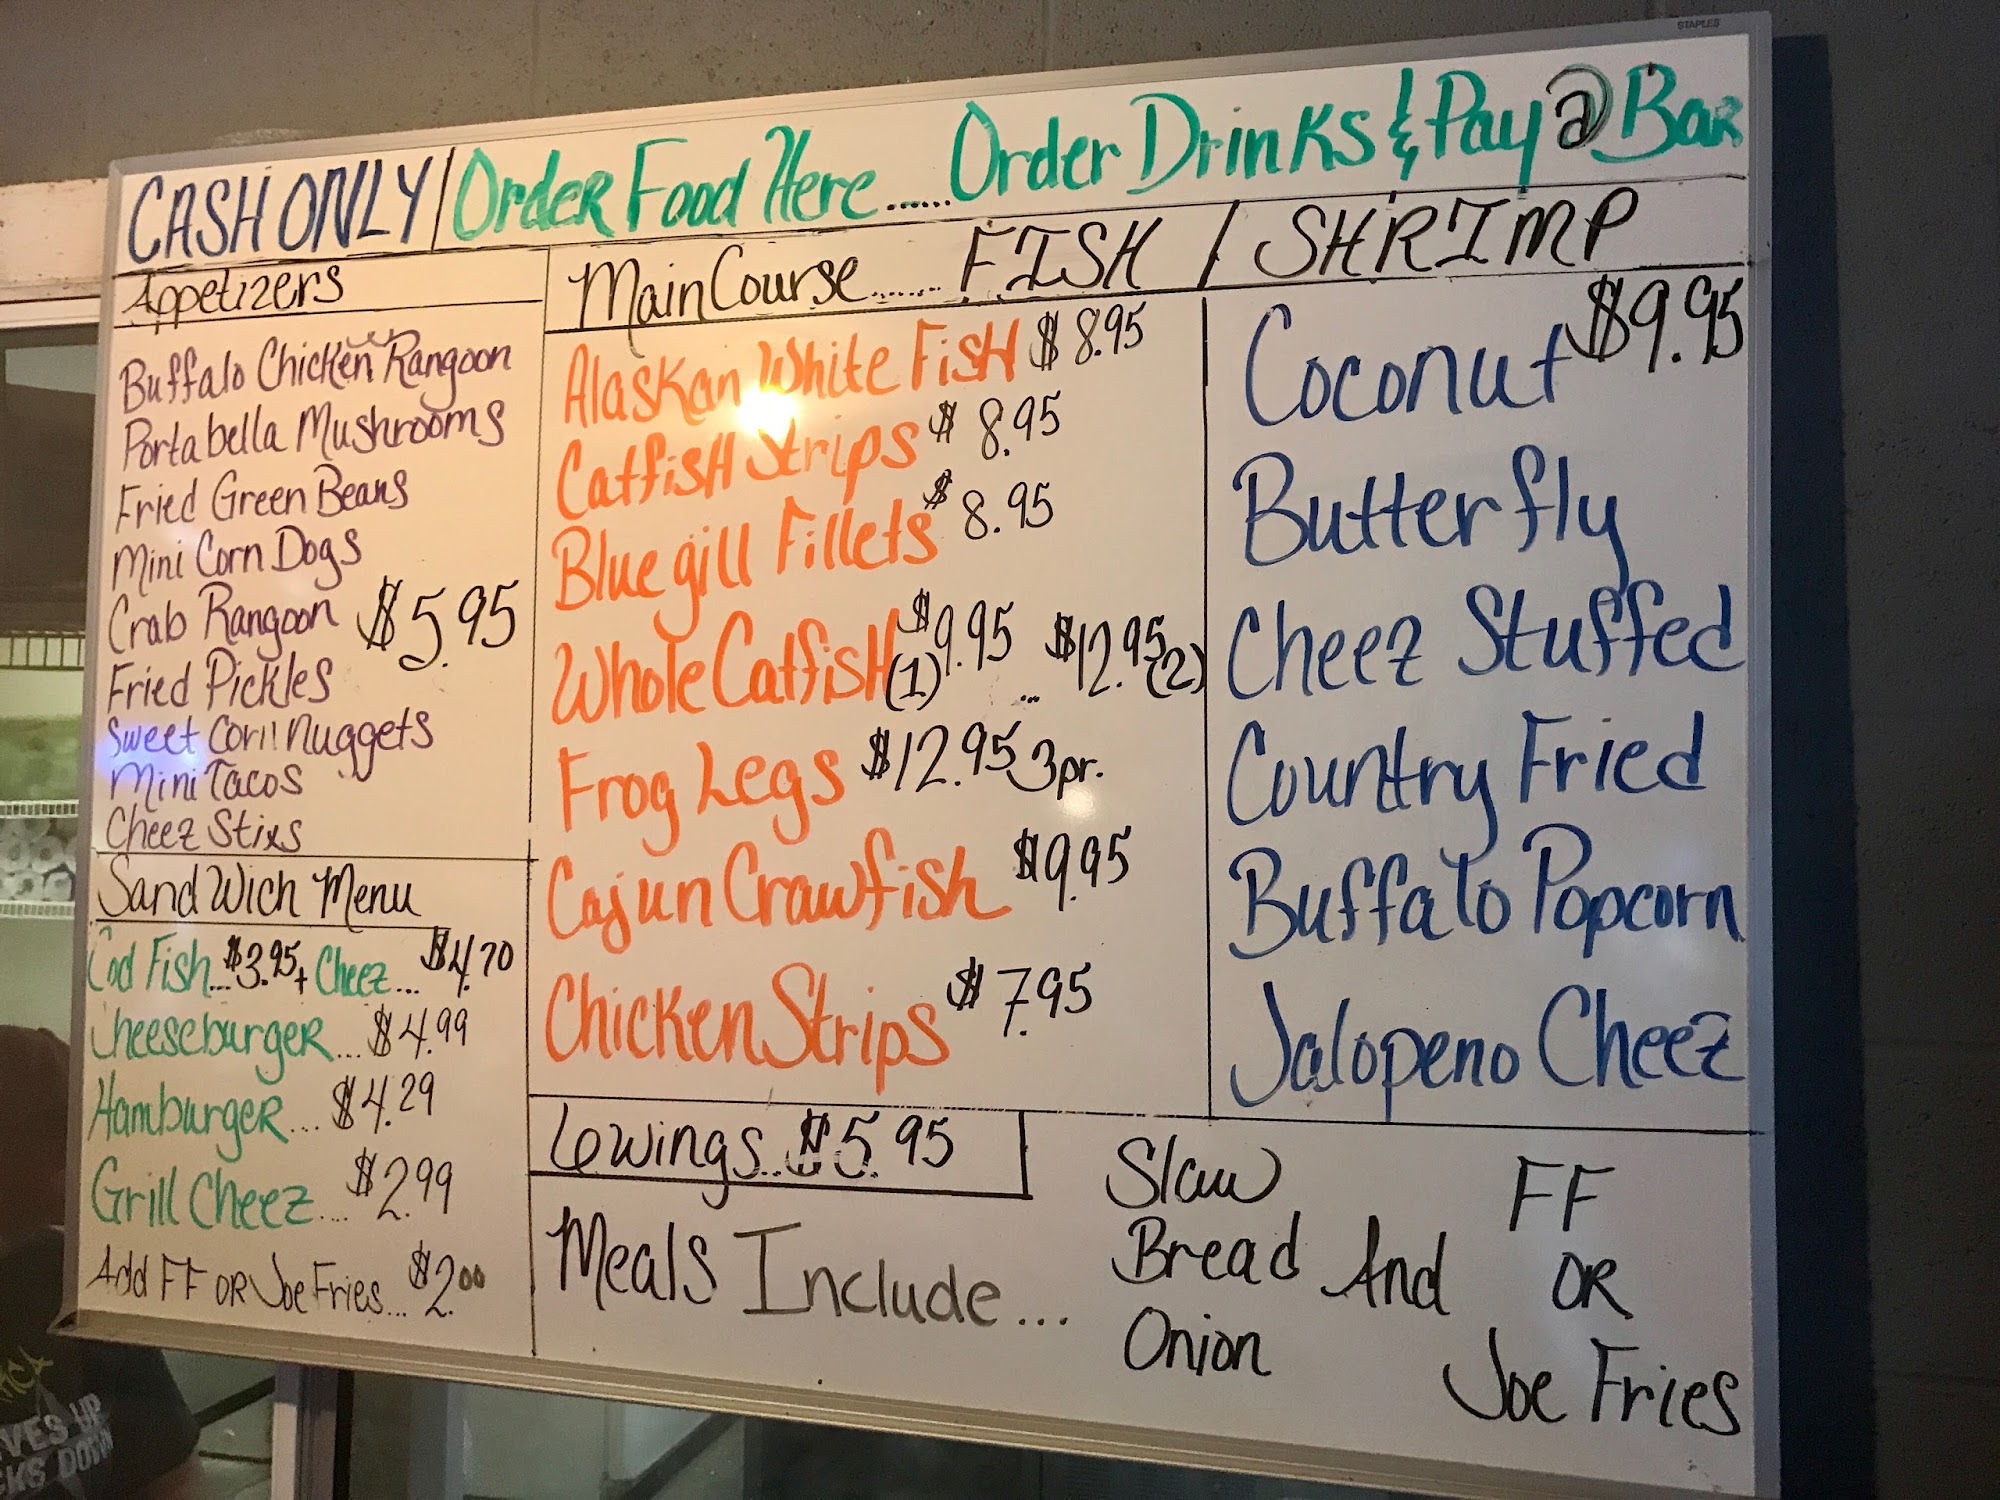 STAPLES
CASH ONLY / Order Food Here......Order Drinks & Pay @ Bar
Appetizers
Buffalo Chicken Rangoon
Portabella Mushrooms
Fried Green Beans
Mini Corn Dogs
Crab Rangoon $5.95
Fried Pickles
Sweet Corn Nuggets
Mini Tacos
Cheez Stixs
Sandwich Menu
Cod Fish...$3.95 + Cheez...$4.70
Cheeseburger...$4.99
Hamburger...$4.29
Grill Cheez...$2.99
Add FF OR Joe Fries...$2.00
Main Course.......FISH / SHRIMP
Alaskan White Fish $8.95
Catfish Strips $8.95
Blue gill Fillets $8.95
Whole Catfish (1) $9.95 ... $12.95 (2)
Frog Legs $12.95 3pr.
Cajun Crawfish $9.95
Chicken Strips $7.95
Coconut $9.95
Butterfly
Cheez Stuffed
Country Fried
Buffalo Popcorn
Jalopeno Cheez
6 wings...$5.95
Meals Include...
Slaw
Bread And
Onion
FF
OR
Joe Fries
VES UP
CKS DOWN